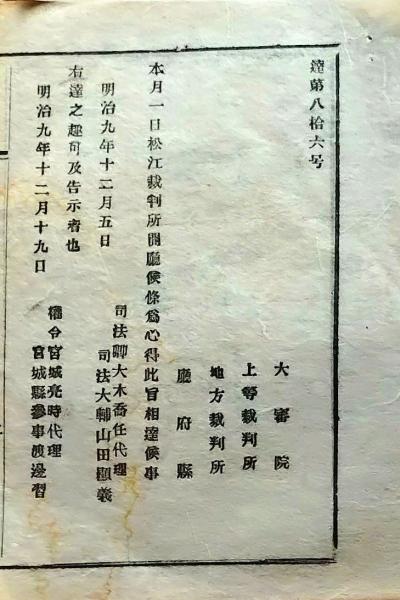 達第八拾六号
大審院
上等裁判所
地方裁判所
廳府縣
本月一日松江裁判所開廳候條爲心得此旨相達候事
明治九年十二月五日
司法卿大木喬任代理
司法大輔山田顯義
右達之趣可及告示者也
明治九年十二月十九日
權令宮城亮時代理
宮城縣參事渡邊習